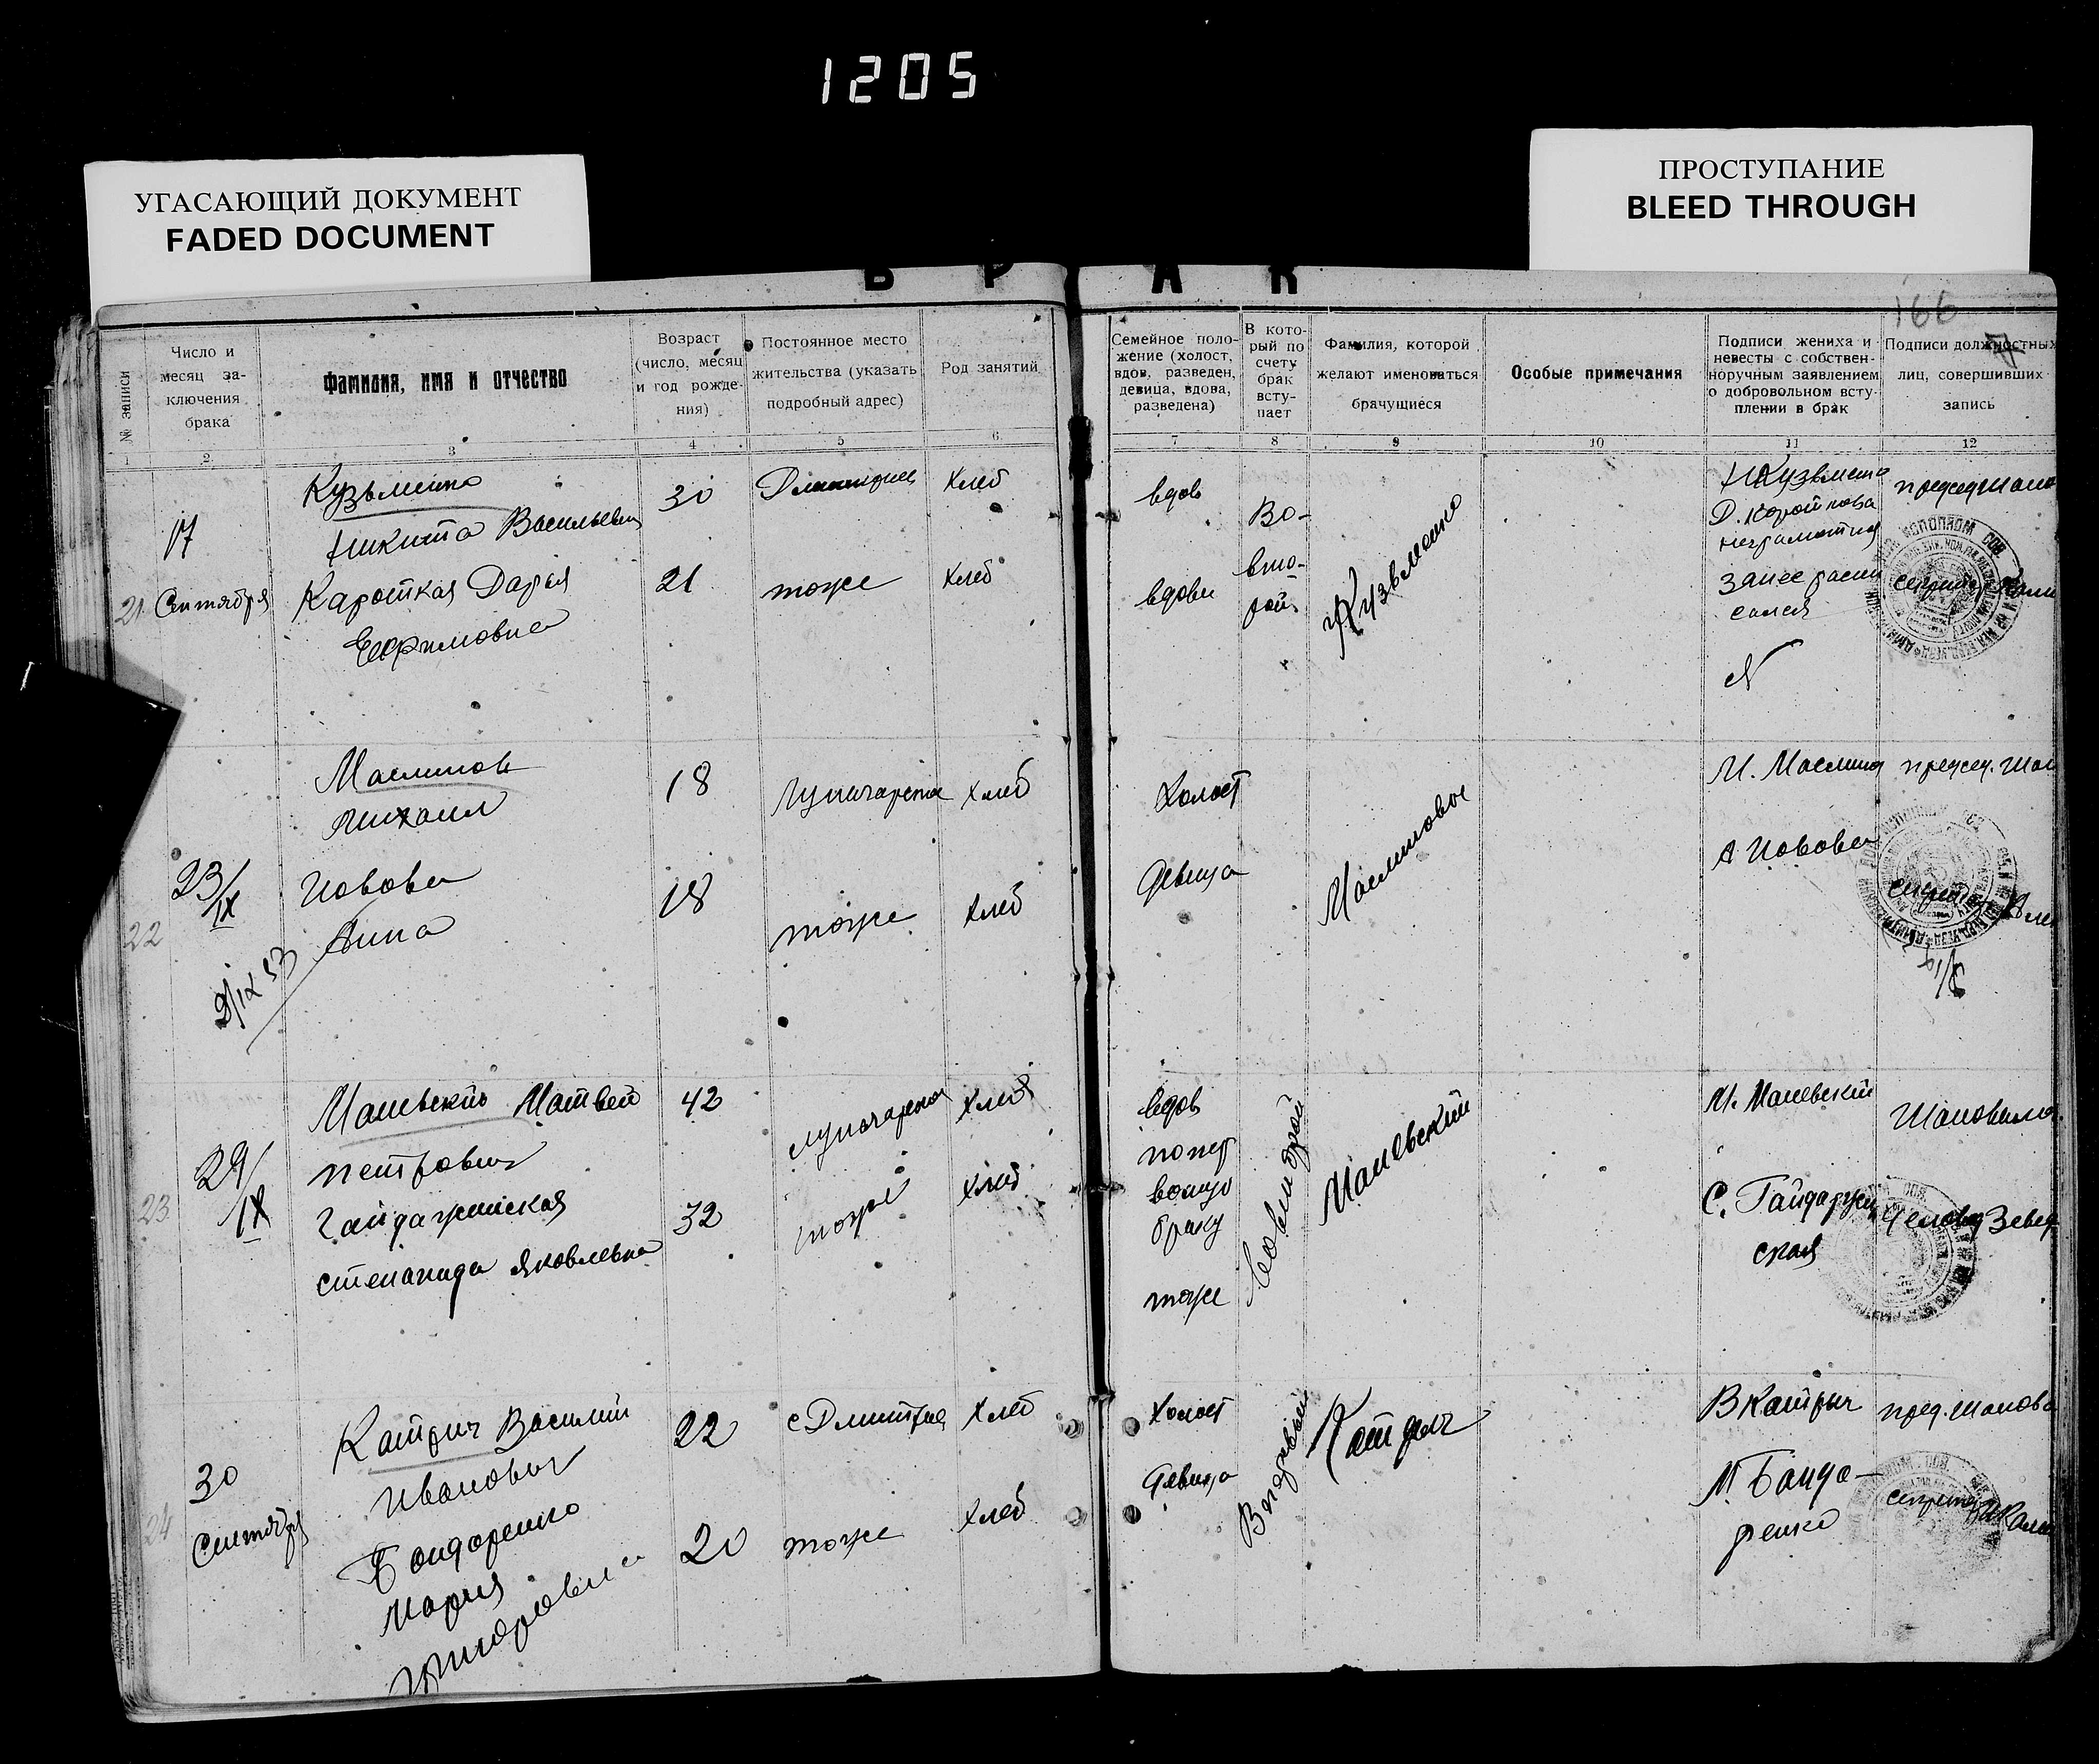 1205
УГАСАЮЩИЙ ДОКУМЕНТ
FADED DOCUMENT
ПРОСТУПАНИЕ
BLEED THROUGH
Б Р А К
166
№ записи
Число и месяц за-
ключения
брака
Фамилия, имя и отчество
Возраст
(число, месяц
и год рожде-
ния)
Постоянное место
жительства (указать
подробный адрес)
Род занятий
Семейное поло-
жение (холост,
вдов, разведен,
девица, вдова,
разведена)
В кото-
рый по
счету
брак
всту-
пает
Фамилия, которой
желают именоваться
брачущиеся
Особые примечания
Подписи жениха и
невесты с собствен-
норучным заявлением
о добровольном всту-
плении в брак
Подписи должностных
лиц, совершивших
запись
1 2 3 4 5 6 7 8 9 10 11 12
21
17
Сентября
Кузьменко
Никита Васильевич
Кароткая Дария
Ефимовна
30
21
тоже
Хлеб
Хлеб
вдов
вдови
Во-
вто-
рой
Кузьменко
Н Кузьменко
Д. Короткова
неграмотная
занее распи
сался
22
23/IX
Маслинов
Михаил
Иовова
Анна
18
18
тоже
хлеб
Хлеб
Холост
девица
Маслиновы
А Иовова
23
29/IX
Маневский Матвей
Петрович
Гайдаржийская
Степанида Яковлевна
42
32
тоже
Хлеб
хлеб
вдов
по пер
вому
браку
тоже
Маневский
М. Маневский
С. Гайдаржий
ская
24
30
Сентября
Катрич Василий
Иванович
Бондаренко
Мария
Григоровна
22
20
с Дмитрие
тоже
Хлеб
Хлеб
Холост
девица
В первый
Катрич
В Катрич
М. Банда-
ренко